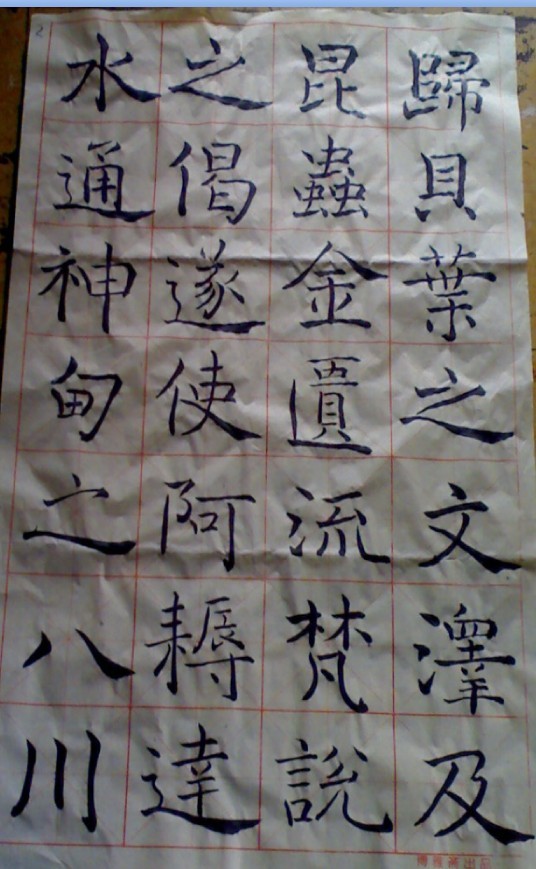 歸貝葉之文澤及
昆蟲金匱流梵說
之偈遂使阿耨達
水通神甸之八川
2